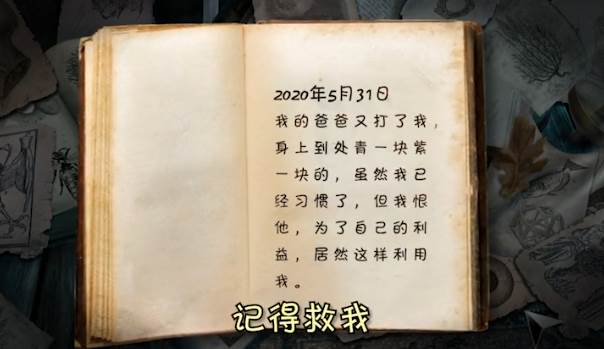 2020年5月31日
我的爸爸又打了我，
身上到处青一块紫
一块的，虽然我已
经习惯了，但我恨
他，为了自己的利
益，居然这样利用
我。
记得救我